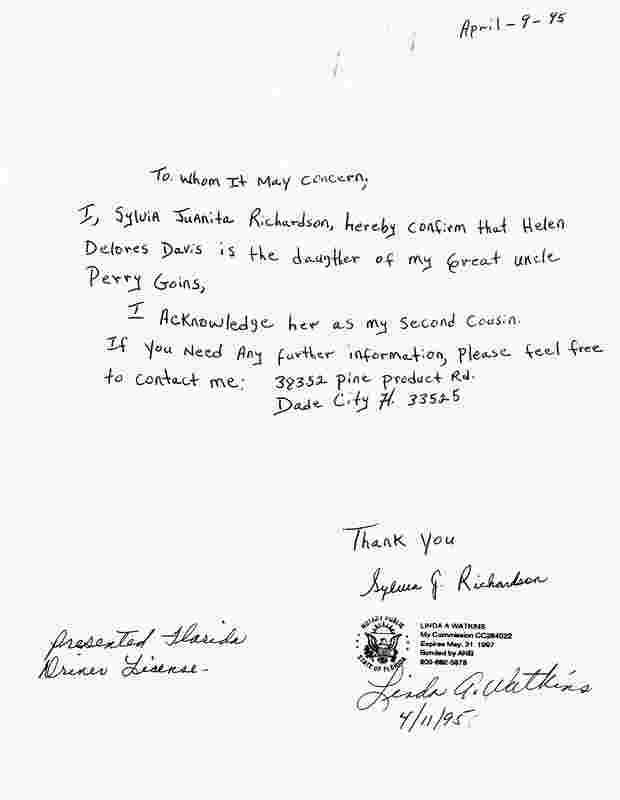 April - 9 - 95
To Whom It May Concern,
I, Sylvia Juanita Richardson, hereby confirm that Helen
Delores Davis is the daugther of my Great uncle
Perry Goins,
I Acknowledge her as my Second Cousin.
If You Need Any further information, please feel free
to contact me: 38352 pine product Rd.
Dade City Fl. 33525
Thank You
Sylvia J. Richardson
NOTARY PUBLIC
STATE OF FLORIDA
LINDA A WATKINS
My Commission CC284022
Expires May. 31, 1997
Bonded by ANB
800-852-5878
presented Florida
Driver License -
Linda A. Watkins
4/11/95